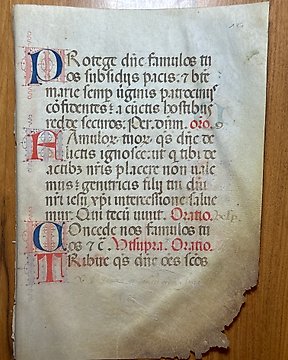 PRotege dñe famulos tu
os subsidijs pacis: ⁊ btē
marie semp ũginis patrocinijs
cõfidentes: a cũctis hostibus
redde securos. Per. dñm. oro.
FAmulor̃ tuor̃. qs dñe de
lictis ignosce: ut q̃ tibi de
actibꝫ nr̃is placere non vale
mus: genitricis filij tui dñi
nr̃i iesu xp̃i intercessione salue
mur. Qui tecũ uiuit. Oratio.
COncede nos famulos tu
os ⁊c̃. Vt supra. Oratio.
TRibue qs dñe oẽs scõs